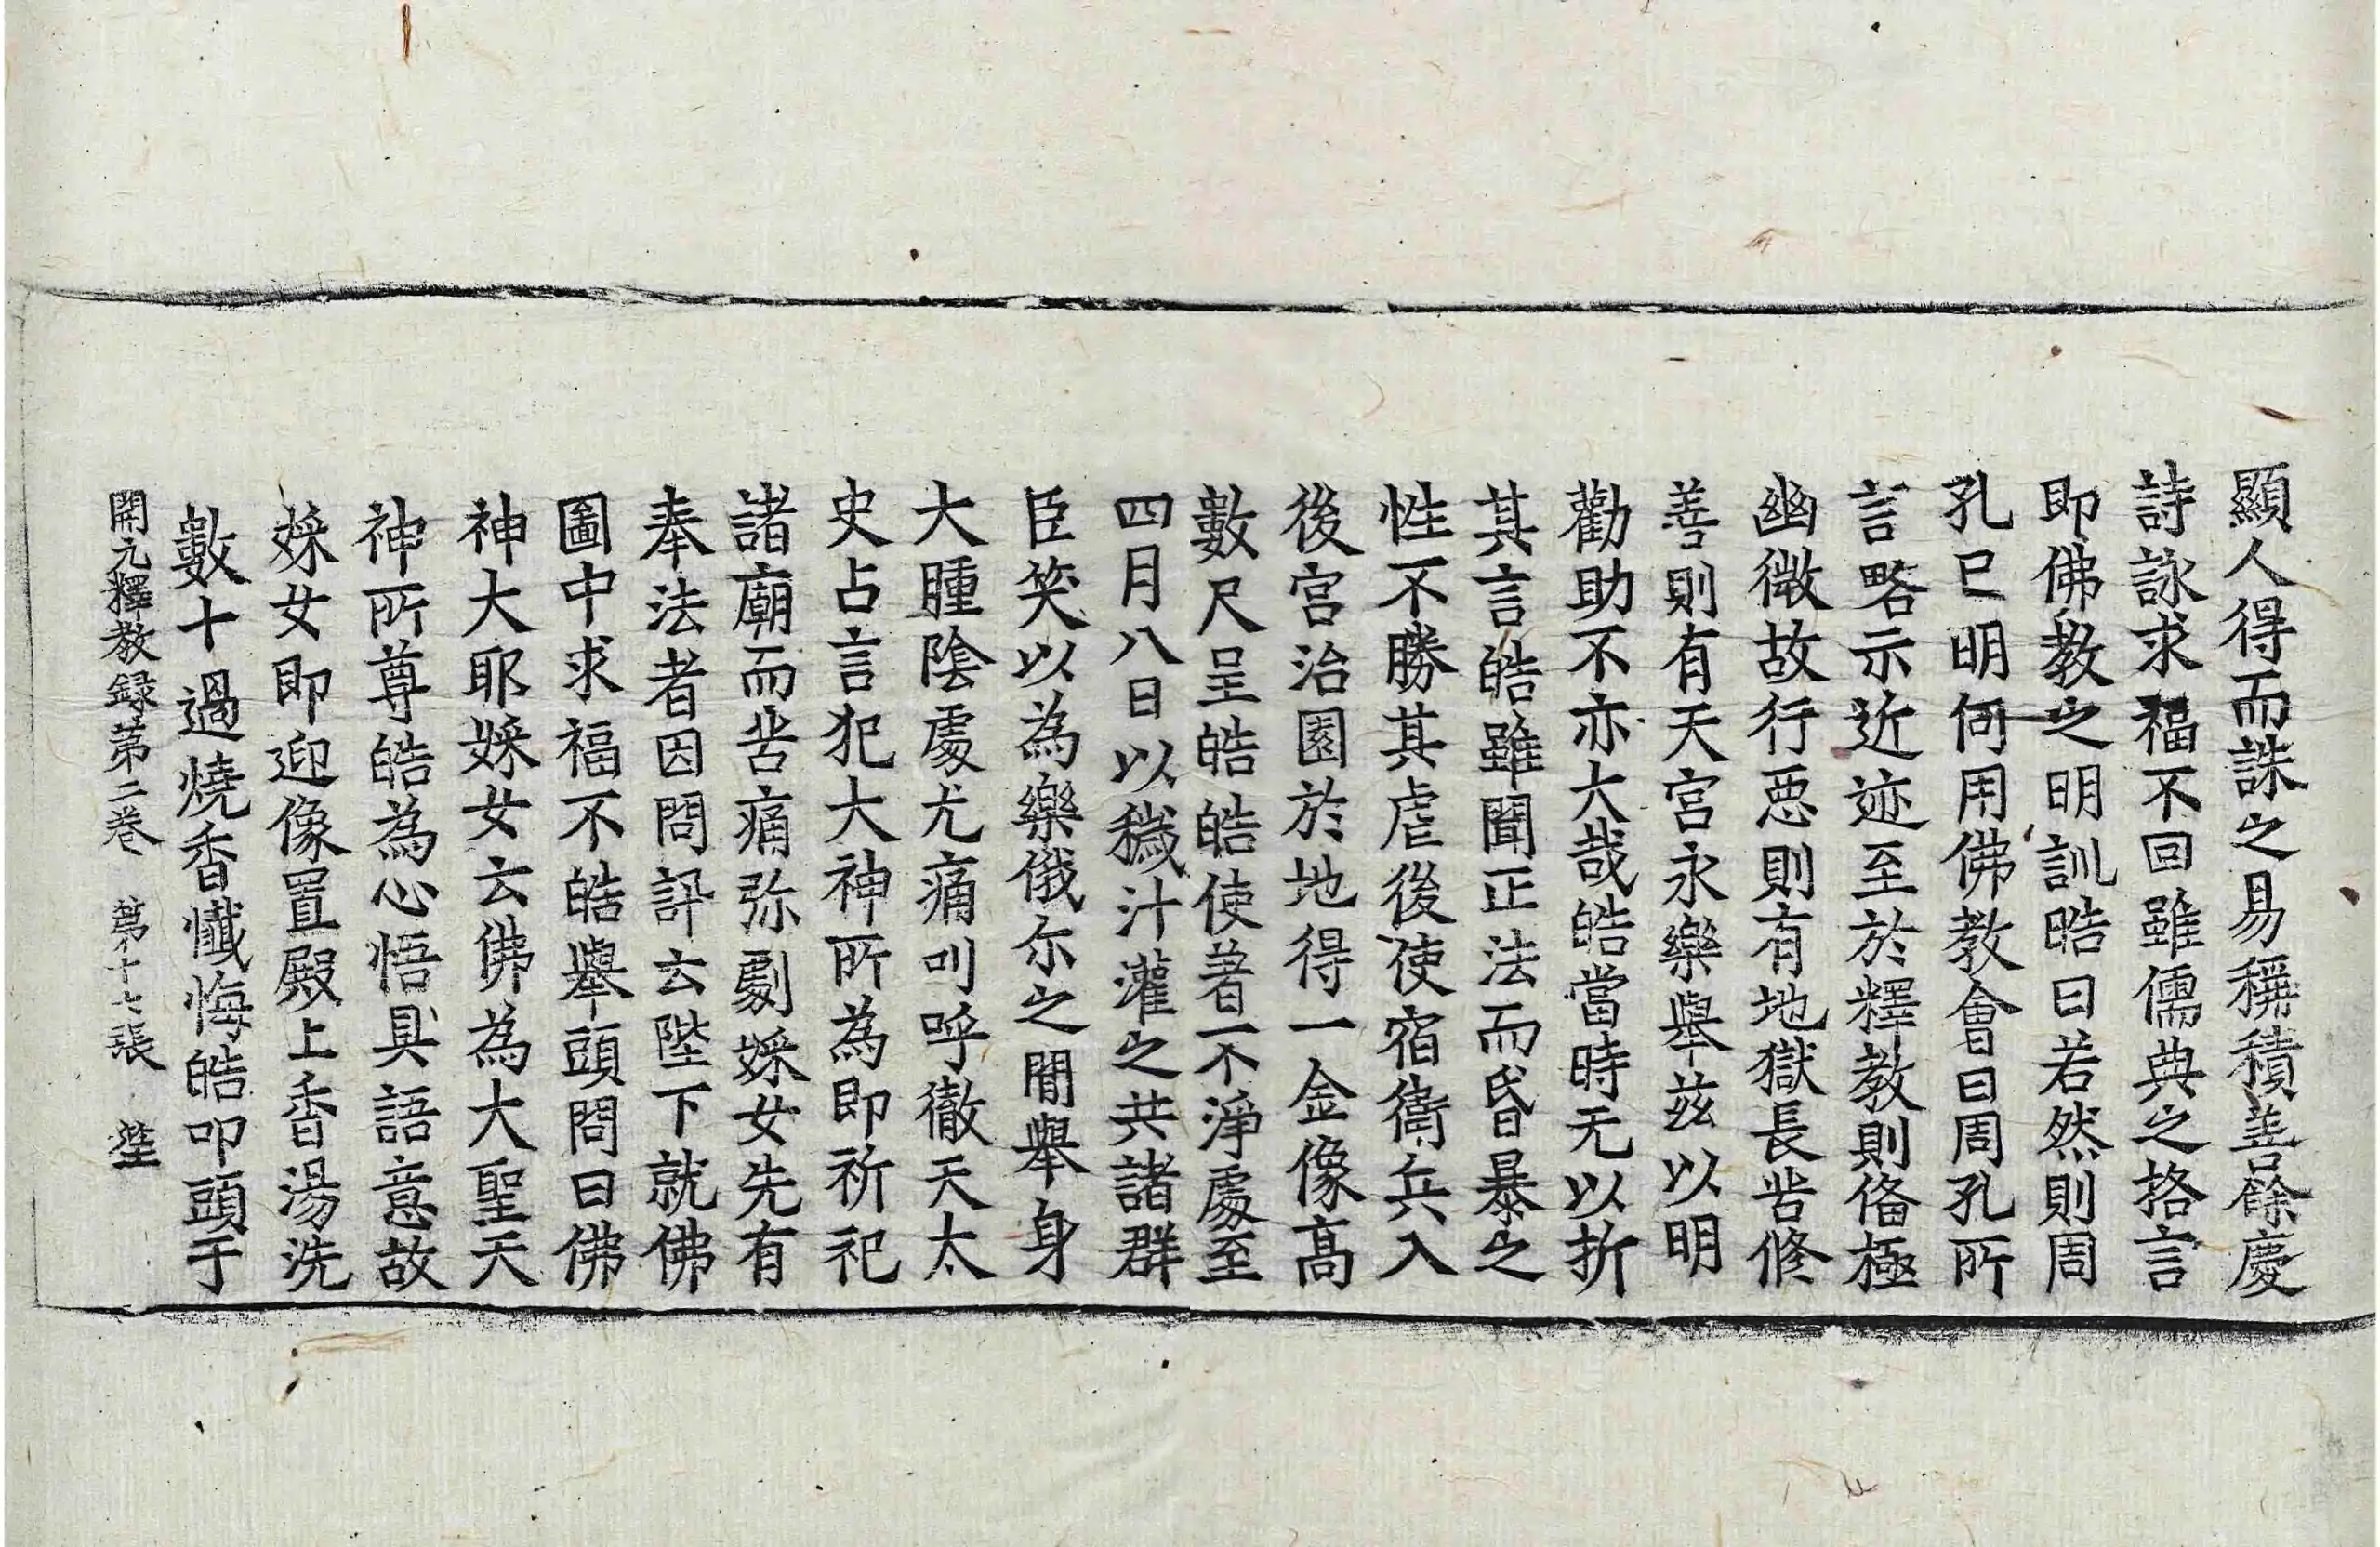 顯人得而誅之易稱積善餘慶
詩詠求福不回雖儒典之挌言
即佛教之明訓晧曰若然則周
孔已明何用佛教會曰周孔所
言略示近迹至於釋教則俻極
幽微故行惡則有地獄長苦修
善則有天宮永樂舉茲以明
勸助不亦大哉皓當時无以折
其言皓雖聞正法而昏暴之
性不勝其虐後使宿衞兵入
後宮治園於地得一金像高
數尺呈皓皓使著不淨處至
四月八日以穢汁灌之共諸群
臣笑以為樂俄尓之閒舉身
大腫陰處尤痛叫呼徹天太
史占言犯大神所為即祈祀
諸廟而苦痛弥劇婇女先有
奉法者因問訊云陛下就佛
圖中求福不皓舉頭問曰佛
神大耶婇女云佛為大聖天
神所尊皓為心悟具語意故
婇女即迎像置殿上香湯洗
數十過燒香懺悔皓叩頭于
開元釋教録苐二卷 苐十七張 筵